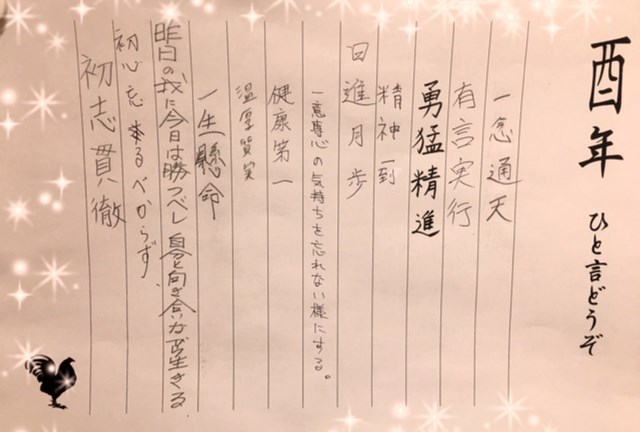 酉年 ひと言どうぞ
一念通天
有言実行
勇猛精進
精神一到
日進月歩
一意専心の気持ちを忘れない様にする。
健康第一
温厚質実
一生懸命
昨日の我に今日は勝つべし 自分と向き合いながら生きる
初心忘るべからず、
初志貫徹